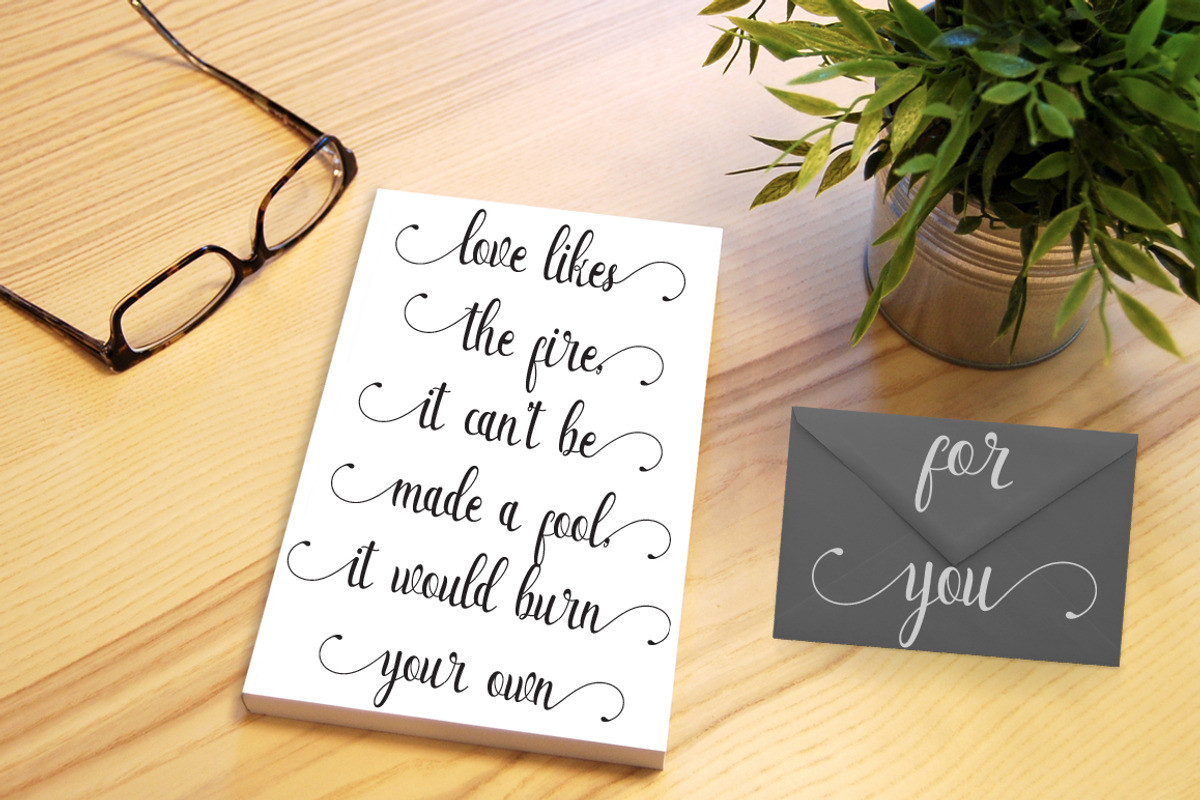 love likes
the fire,
it can't be
made a fool,
it would burn
your own
for
you